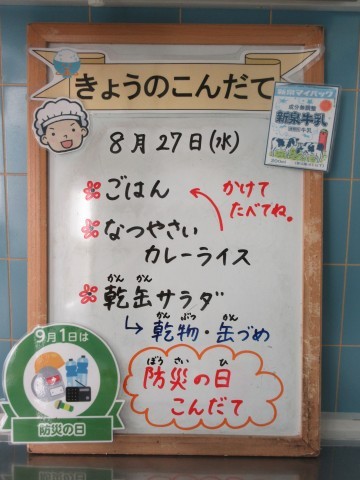 きょうのこんだて
8月27日(水)
ごはん
かけて
たべてね。
なつやさい
カレーライス
かん かん
乾缶サラダ
かん ぶつ かん
↳乾物・缶づめ
ぼう さい ひ
防災の日
こんだて
新泉マイパック
成分無調整
新泉牛乳
9月1日は
防災の日